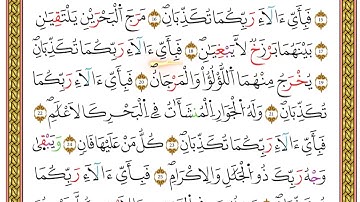 فَبِأَيِّ ءَالَآءِ رَبِّكُمَا تُكَذِّبَانِ ١٨ مَرَجَ ٱلْبَحْرَيْنِ يَلْتَقِيَانِ
بَيْنَهُمَا بَرْزَخٌ لَّا يَبْغِيَانِ فَبِأَيِّ ءَالَآءِ رَبِّكُمَا تُكَذِّبَانِ
يَخْرُجُ مِنْهُمَا ٱللُّؤْلُؤُ وَٱلْمَرْجَانُ فَبِأَيِّ ءَالَآءِ رَبِّكُمَا
تُكَذِّبَانِ وَلَهُ ٱلْجَوَارِ ٱلْمُنشَـَٔاتُ فِى ٱلْبَحْرِ كَٱلْأَعْلَٰمِ
فَبِأَيِّ ءَالَآءِ رَبِّكُمَا تُكَذِّبَانِ كُلُّ مَنْ عَلَيْهَا فَانٍ وَيَبْقَىٰ
وَجْهُ رَبِّكَ ذُو ٱلْجَلَٰلِ وَٱلْإِكْرَامِ فَبِأَيِّ ءَالَآءِ رَبِّكُمَا